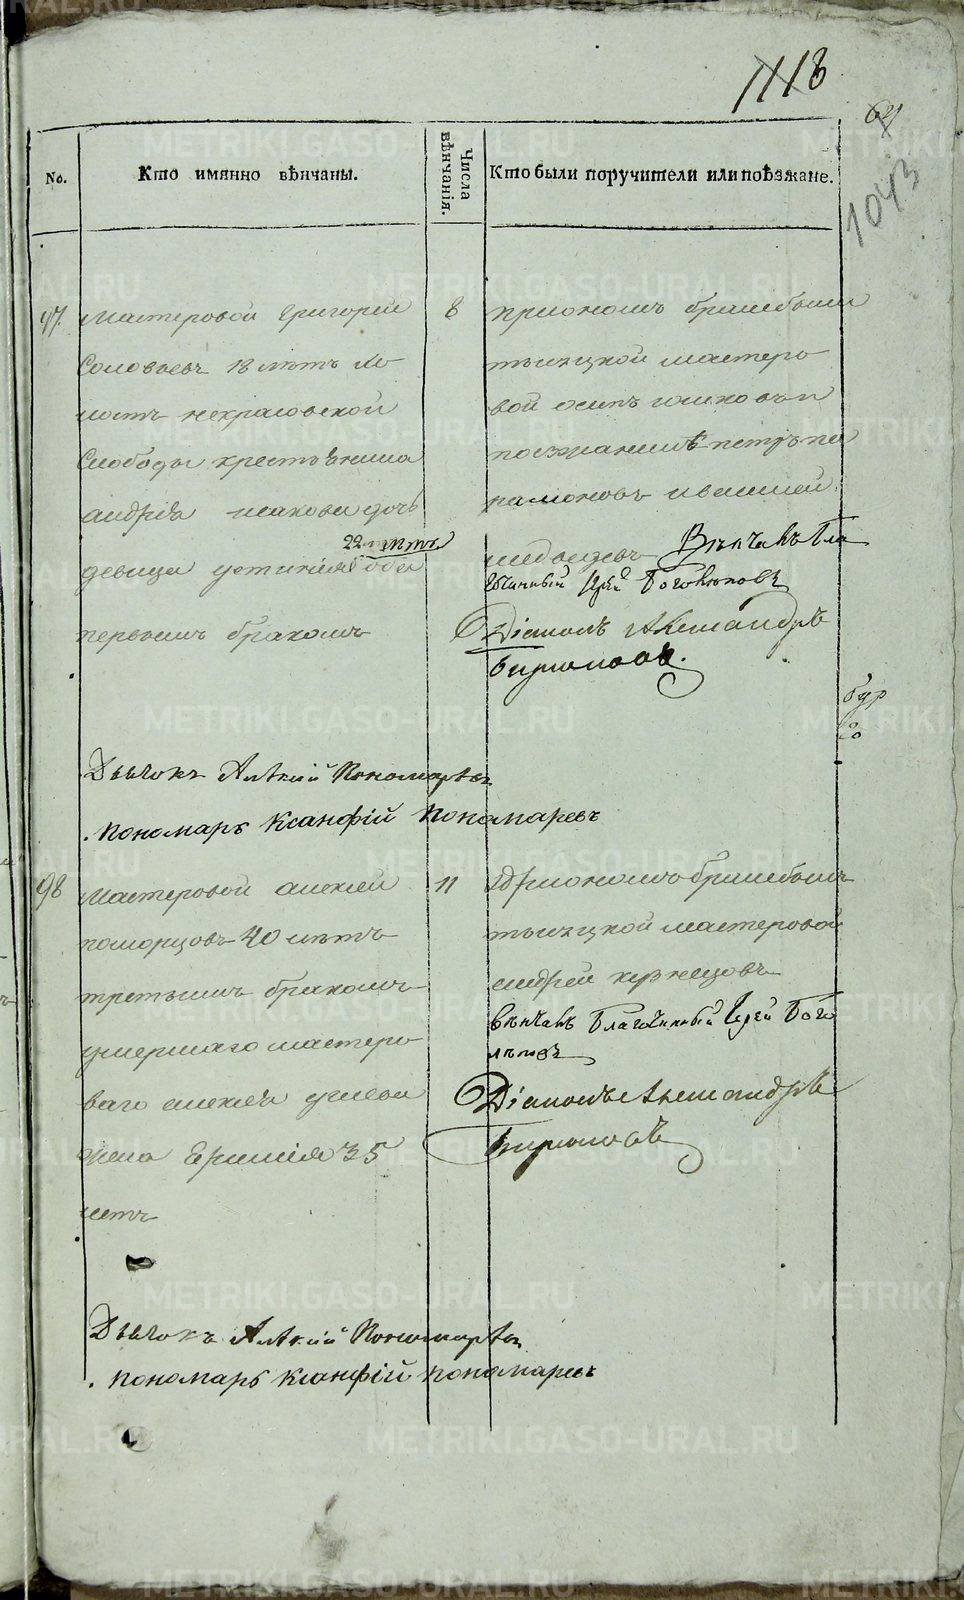 1118
64
1043
No.
Кто имянно вѣнчаны.
Числа вѣнчанія.
Кто были поручители или поѣзжане.
97.
Мастеровой Григорей
Соловьевъ 18 лѣтъ
некрасовской
Слободы крестьянина
андрѣя исакова дочь
22 лѣтъ
девица устинія оба
первымъ бракомъ
8
при ономъ браке были
мастеро
вой осипъ
поезжанинъ петръ
памоновъ
медведевъ Вѣнчалъ Бла
гочинный Іерей Боголѣповъ
Діаконъ Александръ
Бирюковъ.
бур
Дьячокъ Алѣксій Пономарѣвъ
Пономарь Ксанфій Пономаревъ
98
Мастеровой алексей
поморцовъ 40 лѣтъ
третьимъ бракомъ
умершаго мастеро
ваго алексѣя
жена 35
летъ
11
При ономъ браке былъ
мастеровой
андрей кузнецовъ
вѣнчалъ Благочинный Іерей Бого
лѣповъ
Діаконъ Александръ
Бирюковъ
Дьячокъ Алѣксій Пономарѣвъ
Пономарь Ксанфій Пономаревъ
METRIKI.GASO-URAL.RU